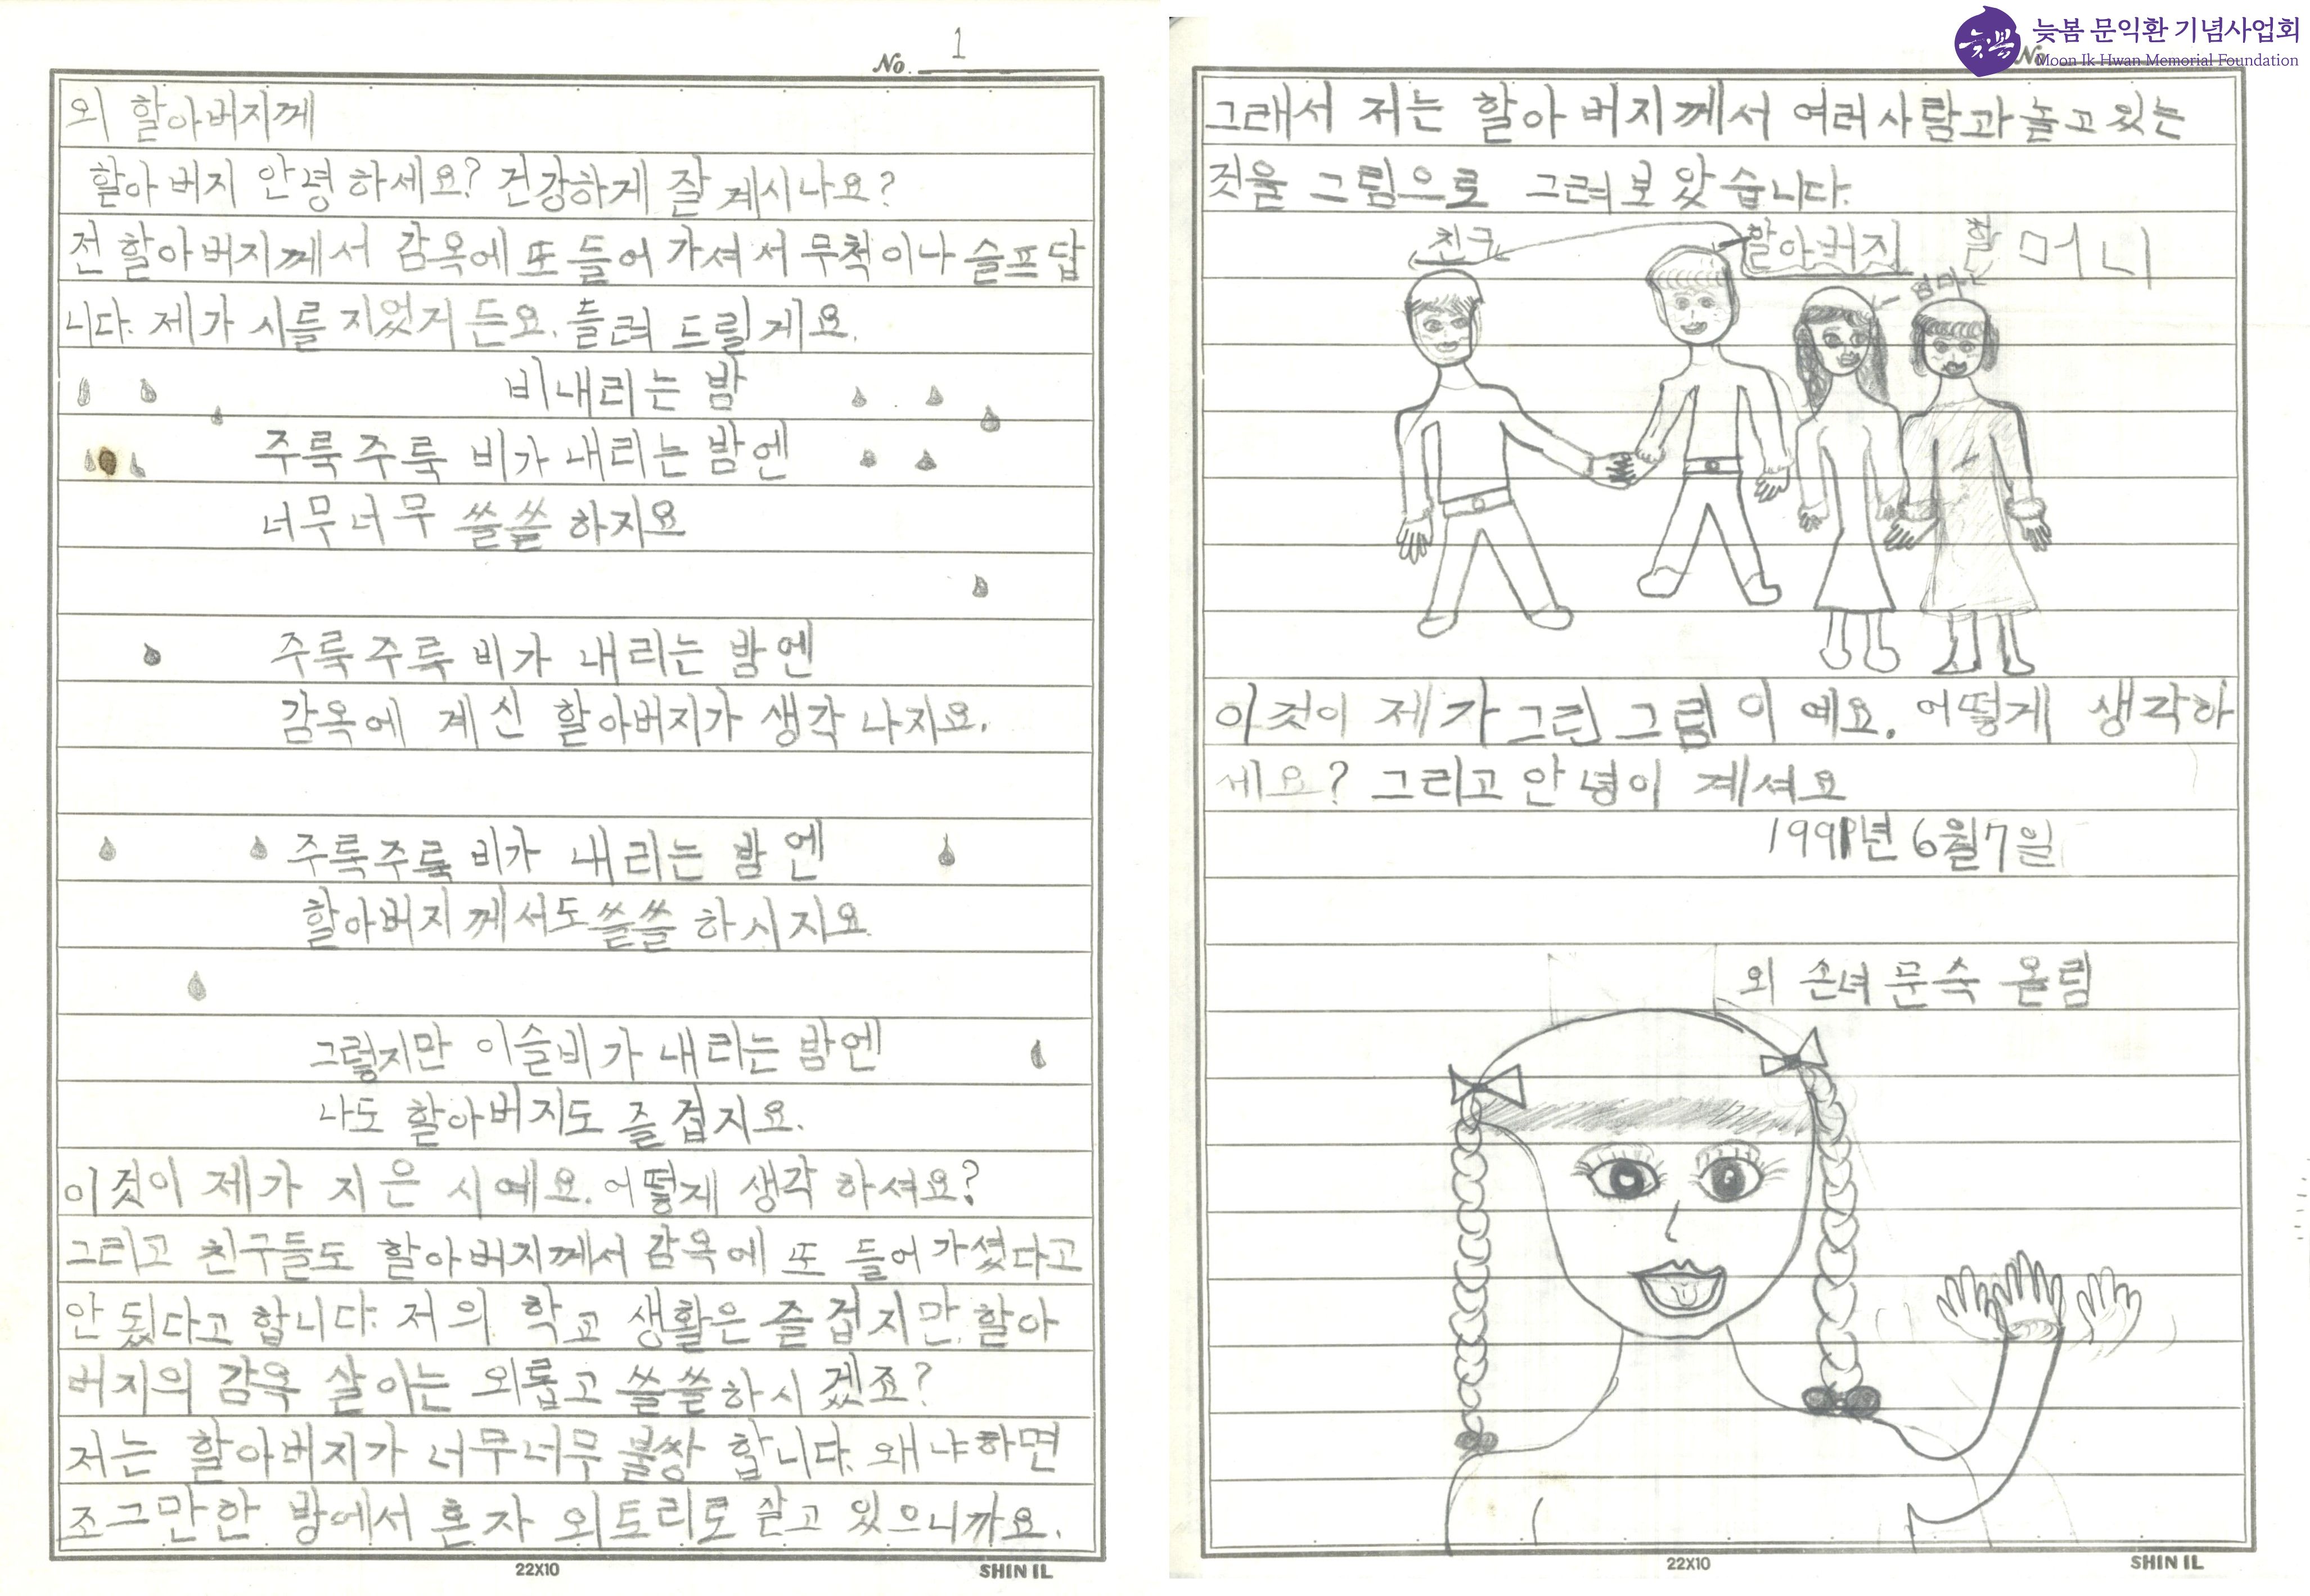 No. 1
외 할아버지께
할아버지 안녕하세요? 건강하게 잘 계시나요?
전 할아버지께서 감옥에 또 들어 가셔서 무척이나 슬프답
니다. 제가 시를 지었거든요. 들려 드릴게요.
비내리는 밤
주룩주룩 비가 내리는 밤엔
너무너무 쓸쓸 하지요
주룩주룩 비가 내리는 밤엔
감옥에 계신 할아버지가 생각 나지요.
주룩주룩 비가 내리는 밤엔
할아버지께서도 쓸쓸 하시지요
그렇지만 이슬비가 내리는 밤엔
나도 할아버지도 즐겁지요.
이것이 제가 지은 시예요. 어떻게 생각 하셔요?
그리고 친구들도 할아버지께서 감옥에 또 들어 가셨다고
안 됬다고 합니다. 저의 학교 생활은 즐겁지만, 할아
버지의 감옥 살이는 외롭고 쓸쓸하시겠죠?
저는 할아버지가 너무너무 불쌍 합니다. 왜냐하면
조그만한 방에서 혼자 외토리로 살고 있으니까요.
22X10
SHIN IL
늦봄 문익환 기념사업회
Moon Ik Hwan Memorial Foundation
No
그래서 저는 할아버지께서 여러사람과 놀고 있는
것을 그림으로 그려보았습니다.
친구 할아버지 할머니
엄마
이것이 제가 그린 그림이예요. 어떻게 생각하
세요? 그리고 안녕이 계셔요
1991년 6월 7일
외 손녀 문숙 올림
22X10
SHIN IL